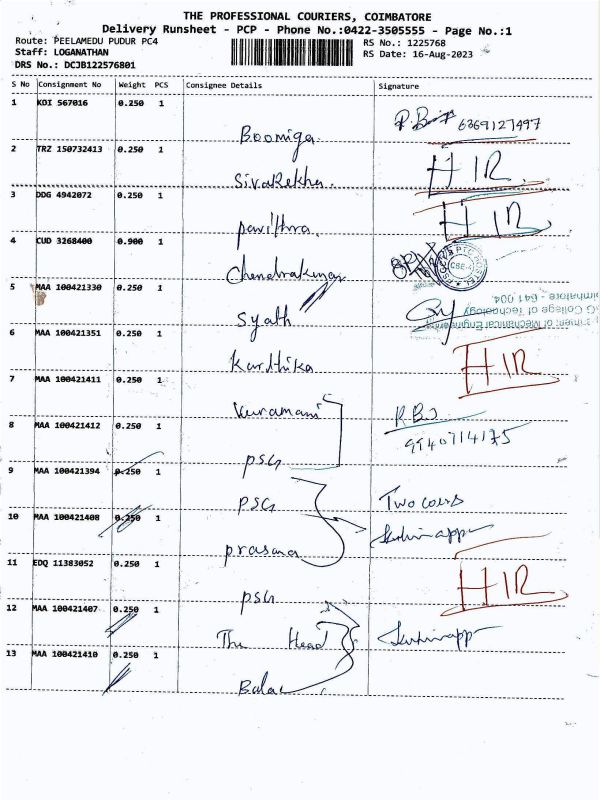 THE PROFESSIONAL COURIERS, COIMBATORE
Delivery Runsheet - PCP - Phone No.:0422-3505555 - Page No.:1
Route: PEELAMEDU PUDUR PC4
Staff: LOGANATHAN
DRS No.: DCJB122576801
RS No.: 1225768
RS Date: 16-Aug-2023
S No Consignment No Weight PCS Consignee Details Signature
1 KOI 567016 0.250 1
Boomiga 6369127497
2 TRZ 150732413 0.250 1
Sivarekha HIR
3 DDG 4942072 0.250 1
pavithra HIR
4 CUD 3268400 0.900 1
Chendrakumar
5 MAA 100421330 0.250 1
6 MAA 100421351 0.250 1
Karthika HIR
7 MAA 100421411 0.250 1
8 MAA 100421412 0.250 1
PSG
9 MAA 100421394 0.250 1
PSG Two covers
10 MAA 100421408 0.250 1
prasana
11 EDQ 11383052 0.250 1
PSG HIR
12 MAA 100421407 0.250 1
The Head
13 MAA 100421410 0.250 1
Bala